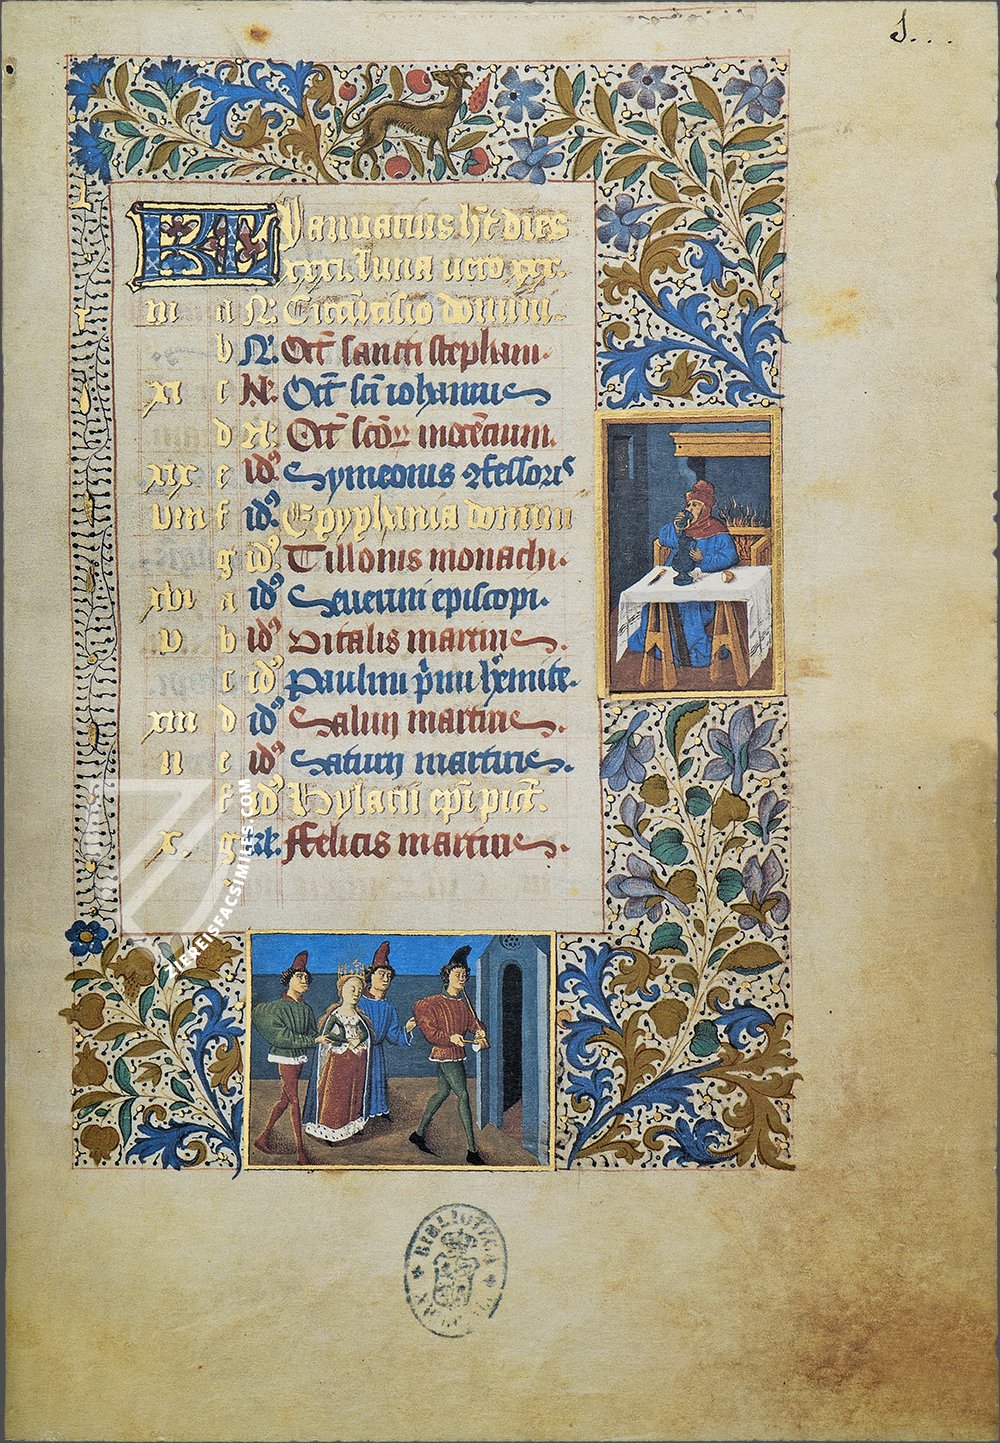 1...
KL Januarius h̄t dies
xxxi. Luna vero xxx.
iii A N. Circūcisio domini.
b N. Oct̄ sancti stephani.
xi c N. Oct̄ sc̄i iohannis
d N. Oct̄ sc̄oꝝ inocētium.
xix e id⁹ Symeonis ꝯfessoris
viii f id⁹. Epyphania domini
g id⁹ Tillonis monachi.
xvi a id⁹ Severini episcopi.
v b id⁹ Vitalis martiris
c id⁹ Pauli p̄mi h̄emite.
xiii d id⁹ Salvii martiris.
ii e id⁹ Satirij martiris.
f id⁹ Hylarii ep̄i pict̄.
x. g kl. Felicis martiris.
ZIEREISFACSIMILES.COM
BIBLIOTECA